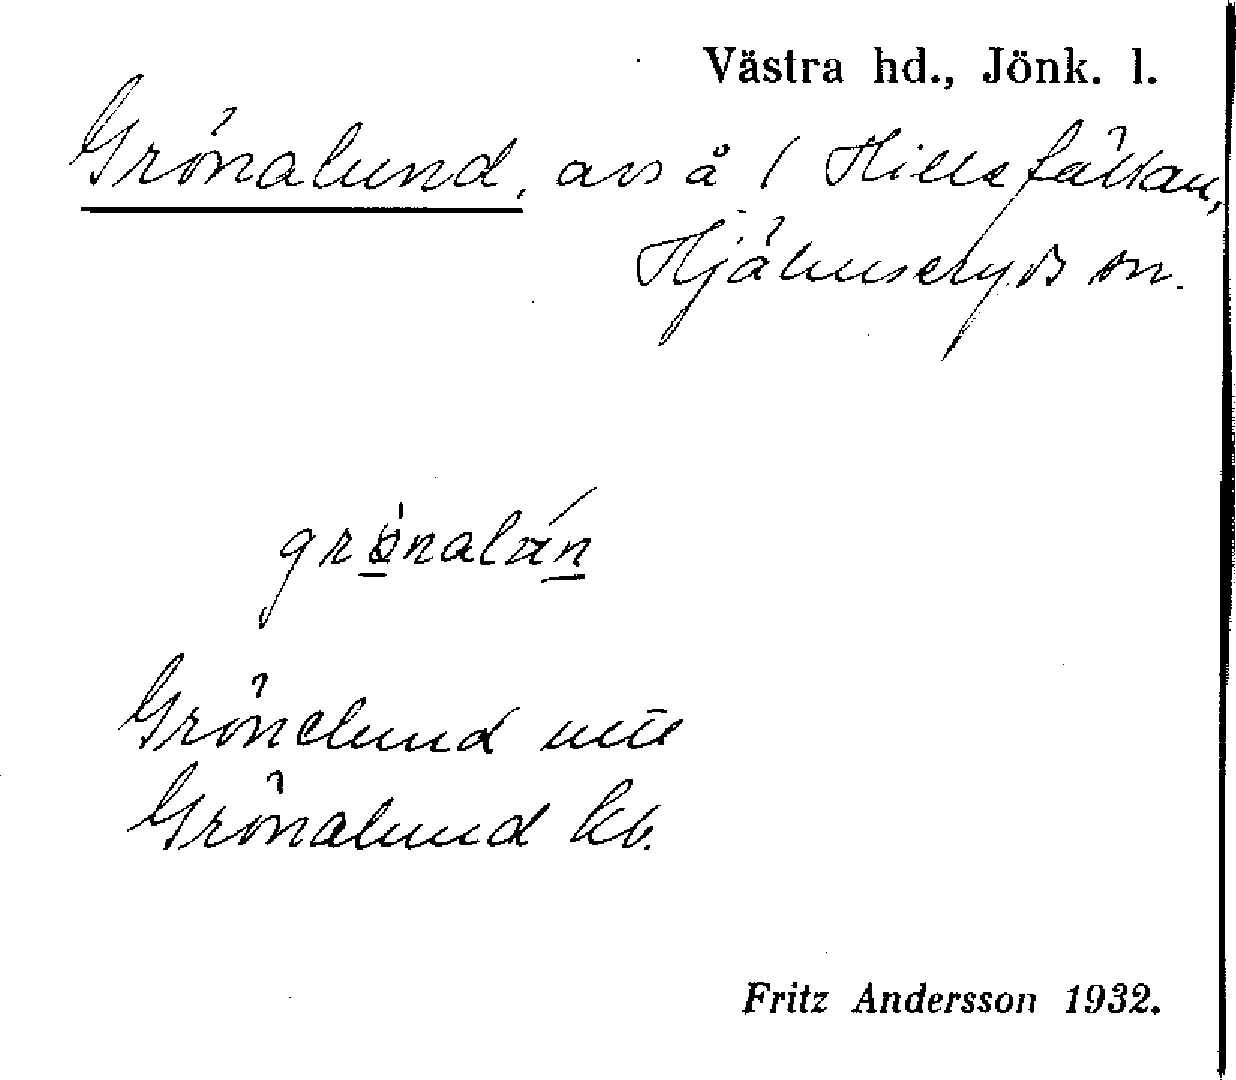 Västra hd., Jönk. l.
Grönalund, avs å 1 Hillsfällan,
Hjälmseryds sn.
grönalán
Grönelund
Grönalund kb.
Fritz Andersson 1932.